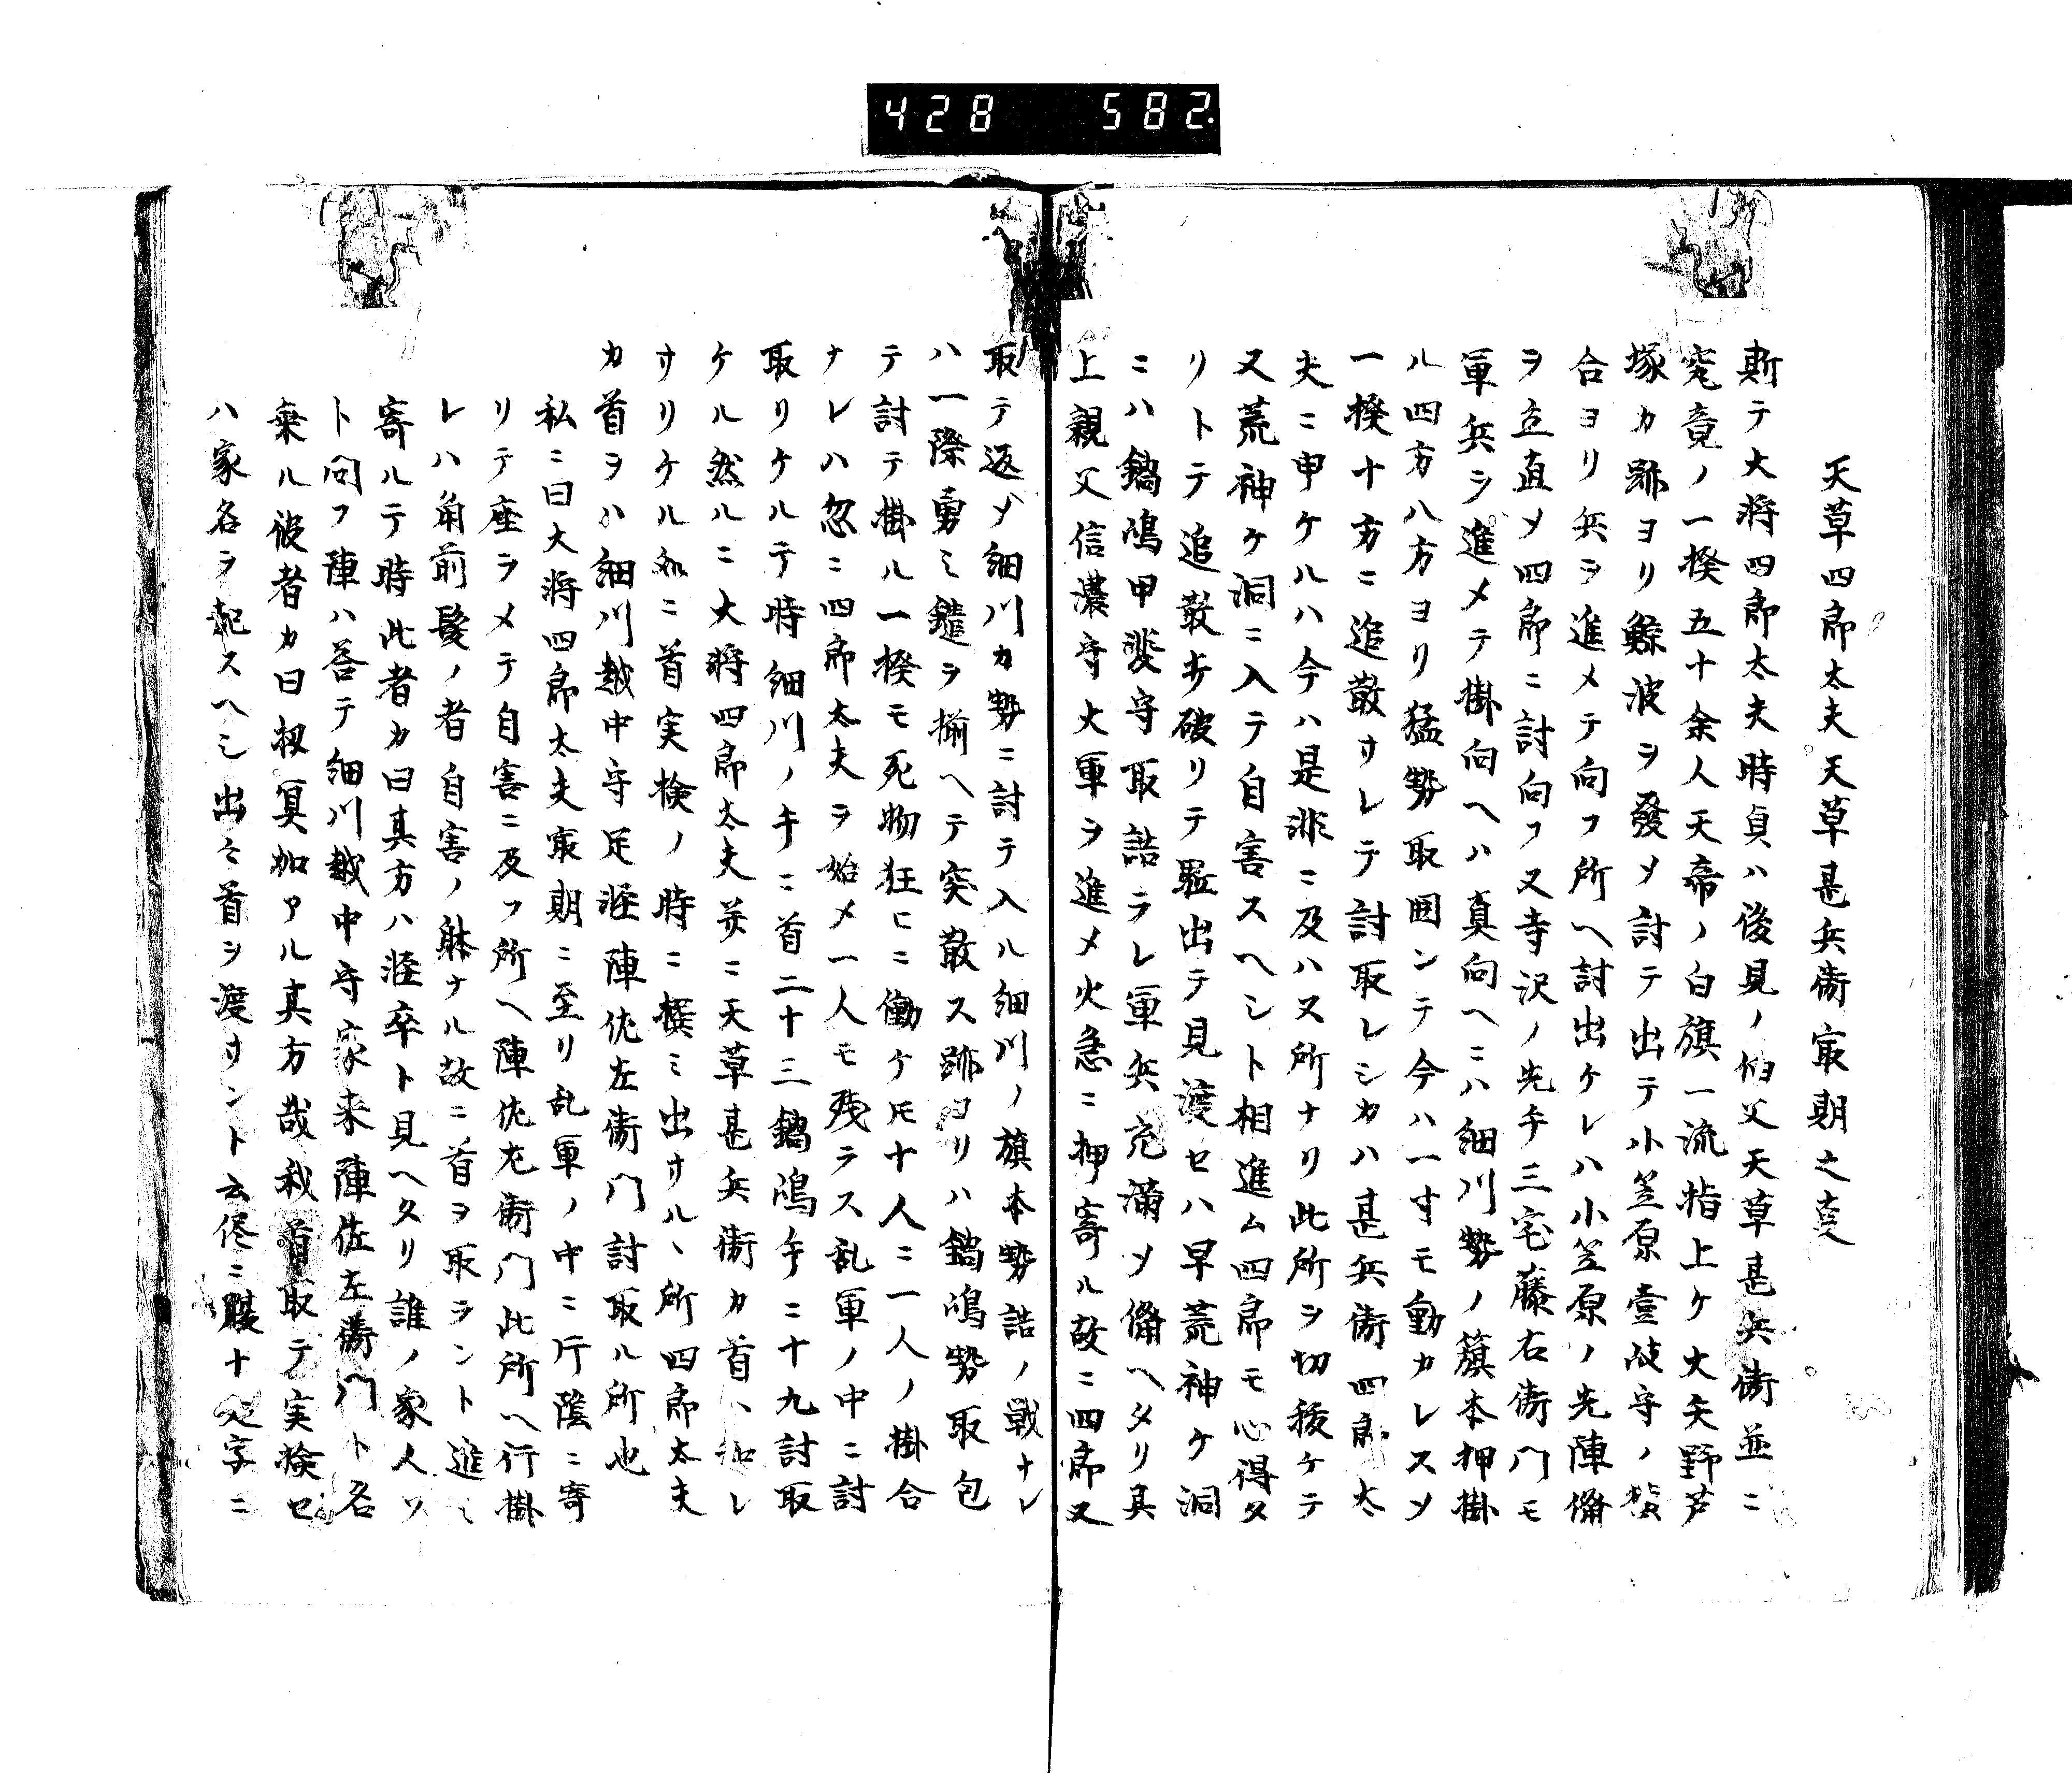 428 582.
天草四郎太夫天草甚兵衛最期之㕝
斯テ大将四郎太夫時貞ハ後見ノ伯父天草甚兵衛並ニ
究竟ノ一揆五十余人天帝ノ白旗一流指上ケ大矢野芦
塚カ跡ヨリ鯨波ヲ發メ討テ出テ小笠原壹岐守ノ
合ヨリ兵ヲ進メテ向フ所ヘ討出ケレハ小笠原ノ先陣備
ヲ立直メ四郎ニ討向フ又寺沢ノ先手三宅藤右衛門モ
軍兵ヲ進メテ掛向ヘハ真向ヘニハ細川勢ノ籏本押掛
ル四方八方ヨリ猛勢取囲ンテ今ハ一寸モ動カレスメ
一揆十方ニ追散サレテ討取レシカハ甚兵衛四郎太
夫ニ申ケルハ今ハ是非ニ及ハヌ所ナリ此所ヲ切抜ケテ
又荒神ケ洞ニ入テ自害スヘシト相進ム四郎モ心得タ
リトテ追散キ破リテ駈出テ見渡セハ早荒神ケ洞
ニハ鍋嶋甲斐守取詰ラレ軍兵充満メ備ヘタリ其
上親父信濃守大軍ヲ進メ火急ニ押寄ル故ニ四郎又
取テ返メ細川カ勢ニ討テ入ル細川ノ旗本勢詰ノ戦ナレ
ハ一際勇ミ鑓ヲ揃ヘテ突散ス跡ヨリハ鍋嶋勢取包
テ討テ掛ル一揆モ死物狂ヒニ働ケ𪜈十人ニ一人ノ掛合
ナレハ忽ニ四郎太夫ヲ始メ一人モ残ラス乱軍ノ中ニ討
取リケルテ時細川ノ手ニ首二十三鍋嶋手ニ十九討取
ケル然ルニ大将四郎太夫并ニ天草甚兵衛カ首ハ知レ
サリケル和ニ首実検ノ時ニ撰ミ出サル丶所四郎太夫
カ首ヲハ細川越中守足軽陣佐左衛門討取ル所也
私ニ曰大将四郎太夫最期ニ至リ乱軍ノ中ニ片陰ニ寄
リテ座ヲメテ自害ニ及フ所ヘ陣佐左衛門此所ヘ行掛
レハ角前髪ノ者自害ノ躰ナル故ニ首ヲ取ラント進ミ
寄ルテ時此者カ曰其方ハ軽卒ト見ヘタリ誰ノ家人ソ
ト問フ陣ハ答テ細川越中守家来陣佐左衛門ト名
乗ル彼者カ曰扨冥加アル其方哉我首取テ実検セ
ハ家名ヲ起スヘシ出々首ヲ渡サント云侭ニ腹十文字ニ